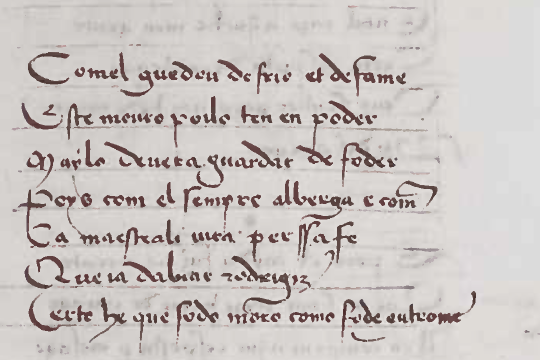 Comel guedou de frio et de fame
Este mouro poilo ten en poder
Maylo deuera guardar de foder
Poys com el sempre alberga e com
Ca maestrali uira per ssa fe
Que ia daluar rodrigiz
Certo he que fode mouro como fode outrome